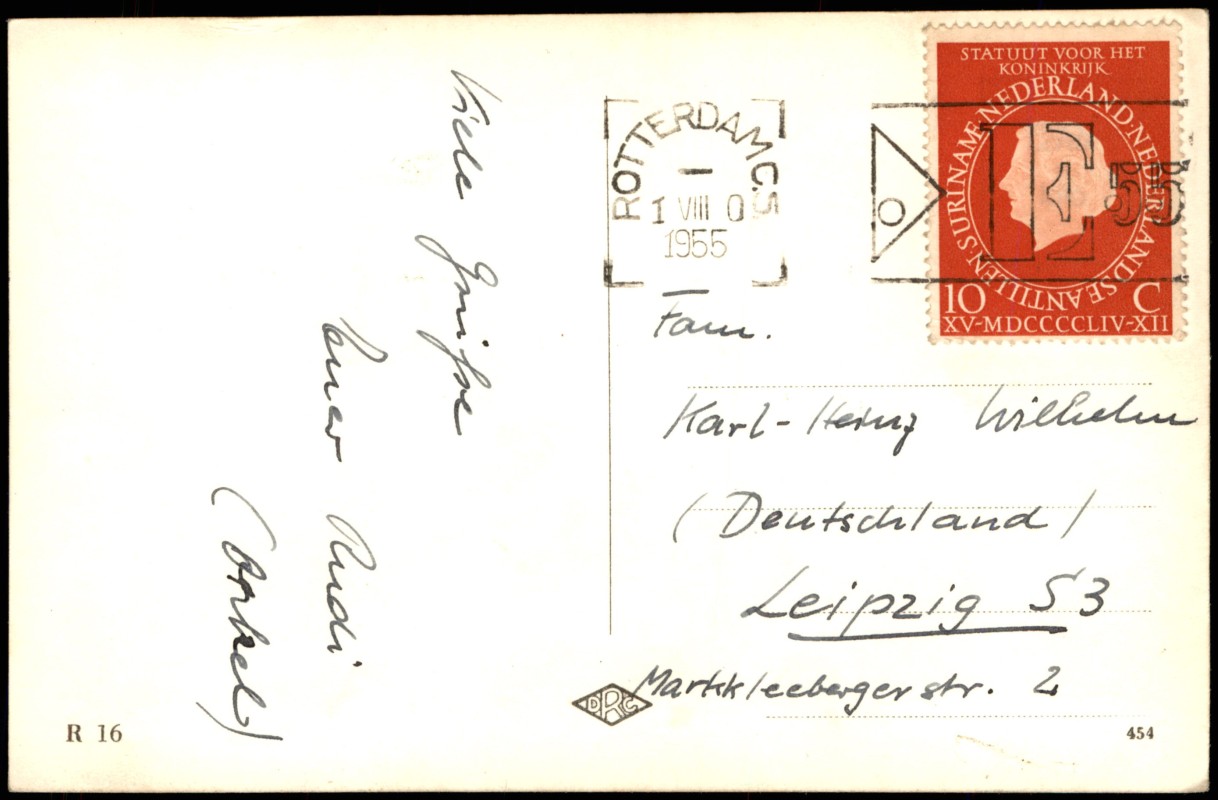 Viele Grüße
Euer Rudi
(Onkel)
R 16
ROTTERDAM C.S
1 VIII 0
1955
E 55
STATUUT VOOR HET
KONINKRIJK
NEDERLAND·NEDERLANDSE ANTILLEN·SURINAME·
10 C
XV-MDCCCCLIV-XII
Fam.
Karl-Heinz Wilhelm
(Deutschland)
Leipzig S3
Markkleebergerstr. 2
DRC
454